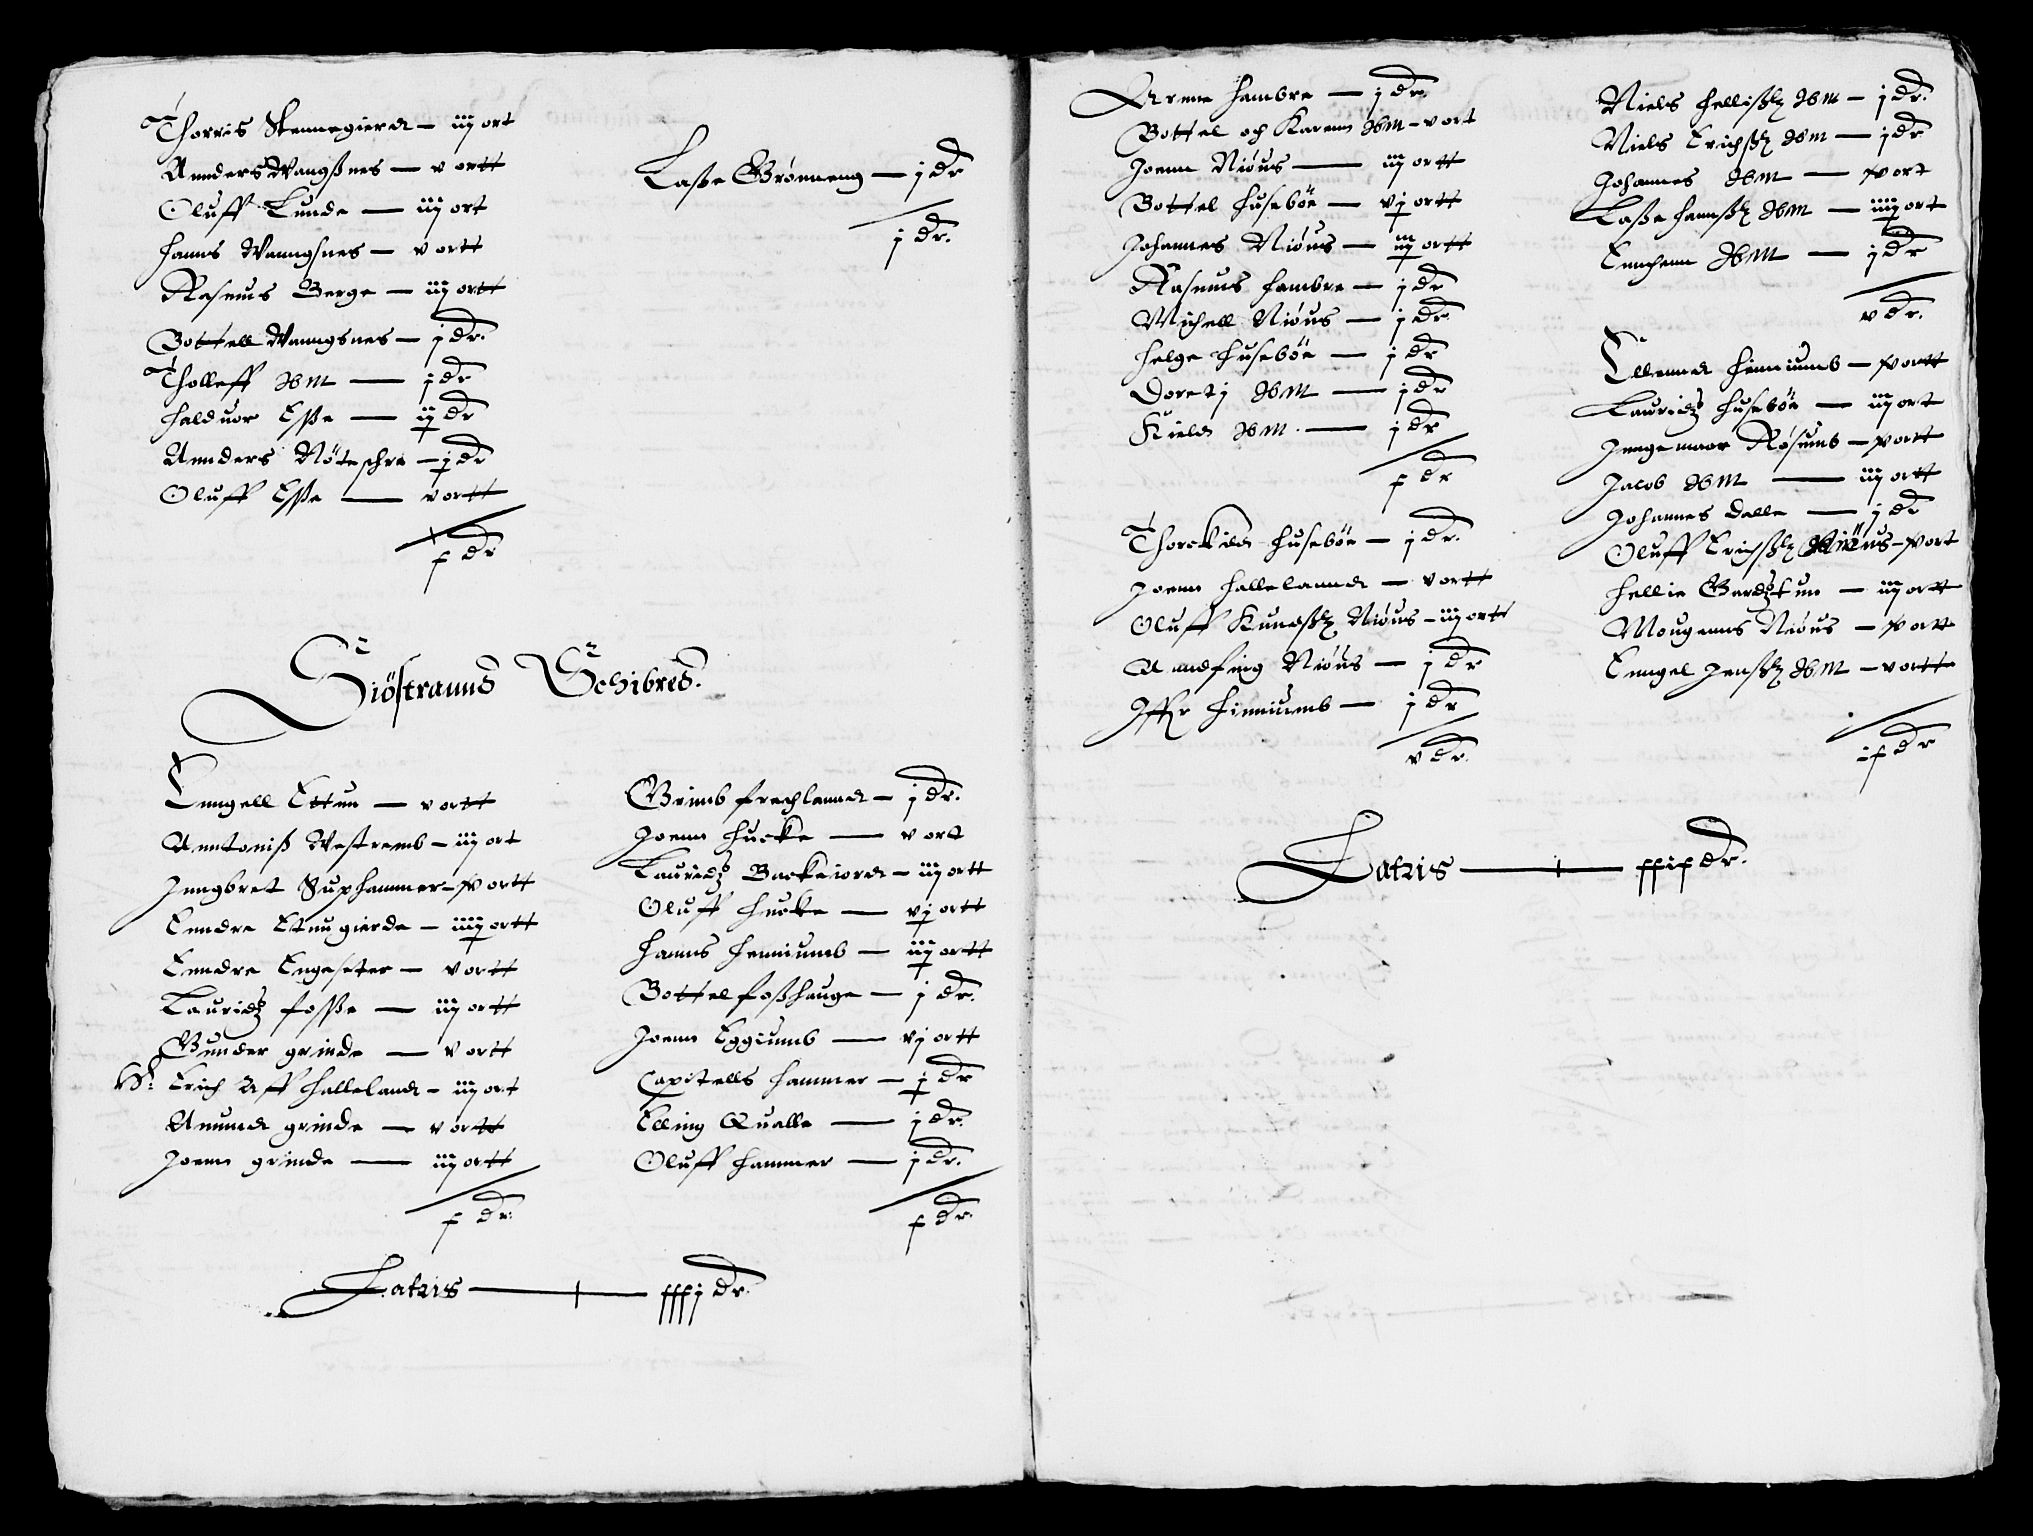 Thorris Stennegierd — iij ort
Annders Wangßnes — v ortt
Oluff Lunde — iij ort
Hanns Wanngsnes — v ortt
Rasmus Berge — iij ortt
Bottell Wanngsnes — j dr.
Tholleff ibm — j dr
Halduor Esße — ij dr
Annders Nöteschre — j dr
Oluff Esße — v ortt
x dr
Laße Grönneng — j dr
j dr.
Siöstrannds Schibred.
Enngell Ettun — v ortt
Anntoniß Westremb — iij ort
Jnngbret Suphammer — v ortt
Enndre Etnugierde — iiij ortt
Enndre Engeseter — v ortt
Lauridz fosße — iij ortt
Gunder grinde — v ortt
Erich Aff Halleland — iij ort
Amund grinde — v ortt
Joenn grinde — iij ortt
x dr.
Grimb frechlannd — j dr.
Joenn Hucke — v ort
Lauridz Backeiord — iij ortt
Oluff Hucke — vj ortt
Hanns Henniumb — iij ortt
Bottel foßhauge — j dr.
Joenn Eggiumb — vj ortt
Capitells Hammer — j dr
Elling Qualle — j dr.
Oluff Hammer — j dr.
x dr.
Latris — xxxj dr.
Arenn Hambre — j dr.
Bottel och Karenn ibm — v ort
Joenn Niöus — iij ortt
Bottel Huseböe — vj ortt
Johannes Niöus — iij ortt
Rasmus Hambre — j dr
Michell Niöus — j dr.
Helge Huseböe — j dr
Doretj ibm — j dr
Kield ibm — j dr
x dr
Thorckild Huseböe — j dr.
Joenn Hallelannd — v ortt
Oluff Knudßß Niöus — iij ortt
Amndfing Niöus — j dr
Iffer Finniumb — j dr
v dr.
Niels Hellißß ibm — j dr.
Niels Erichßß ibm — j dr
Johannes ibm — v ort
Laße Hannßß ibm — iiij ort
Ennchenn ibm — j dr
v dr.
Ellennd Hinniumb — v ortt
Lauridz Huseböe — iij ort
Jnngemaar Rösumb — v ortt
Jacob ibm — iij ortt
Johannes Dalle — j dr
Oluff Erichßß Niöus — v ort
Hellie Gardztun — iij ortt
Mougenns Niöus — v ortt
Enngel Jennßß ibm — v ortt
ix dr
Latris — xxix dr.